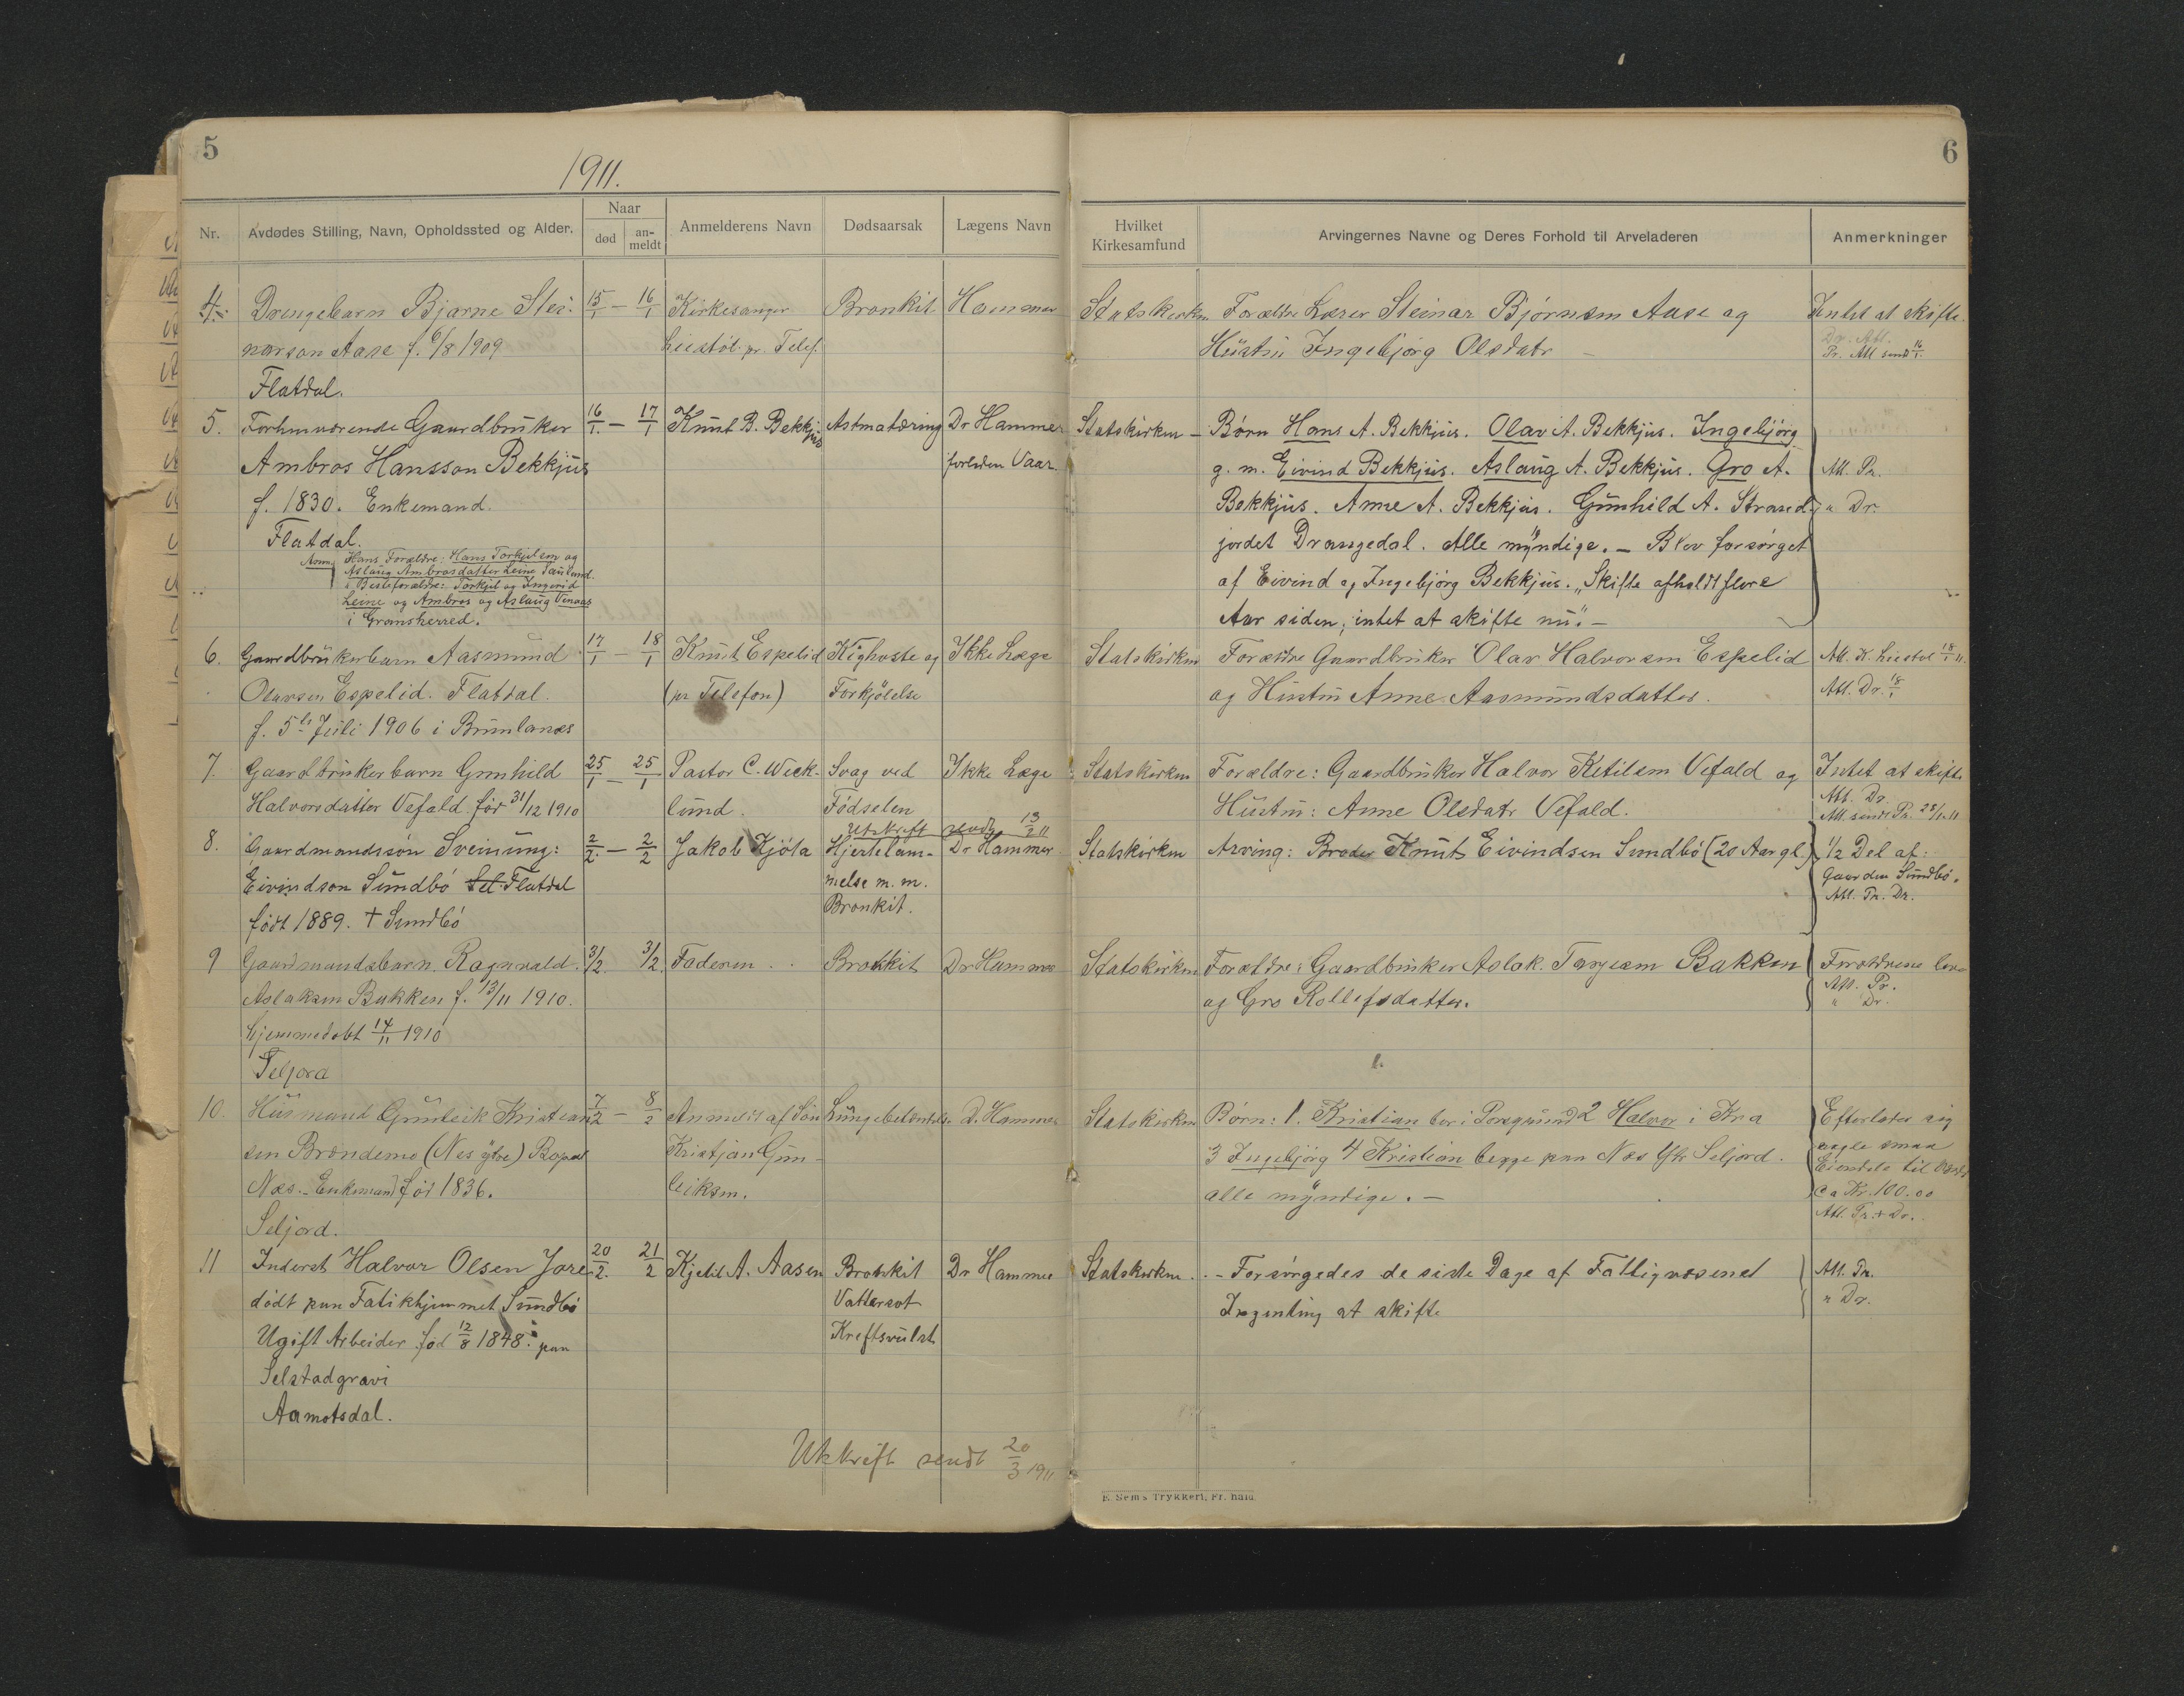 5
1911.
Nr.
Avdødes Stilling, Navn, Opholdssted og Alder.
Naar
død
an-
meldt
Anmelderens Navn
Dødsaarsak
Lægens Navn
4. Drengebarn Bjarne Stei- 15/1 — 16/1 Kirkesanger Bronkit Hammer
narson Aase f. 6/8 1909 Liestöl pr. Telef.
Flatdal.
5. Forhenværende Gaardbruker 16/1. — 17/1 Knut B. Bekkjus Astmatæring Dr Hammer
Ambros Hansson Bekkjus forleden Vaar.
f. 1830. Enkemand.
Flatdal.
Anm Hans Forældre: Hans Torkjelsen og
Aslaug Ambrosdatter Leine Sauland.
Besteforældre: Torkjel og Ingerid
Leine og Ambros og Aslaug Vinaas
i Gransherred.
6. Gaardbrukerbarn Aasmund 17/1 — 18/1 Knut Espelid Kighoste og Ikke Læge
Olavsen Espelid. Flatdal. (pr Telefon) Forkjölelse
f. 5te Juli 1906 i Brunlanæs
7. Gaardbrukerbarn Gunhild 25/1 — 25/1 Pastor C. Weck- Svag ved Ikke Læge
Halvorsdatter Vefald før 31/12 1910 lund. Födselen
Utskrift sendt 13/2 11
8. Gaardmandssön Sveinung: 2/2. — 2/2 Jakob Kjöla Hjertelam- Dr Hammer
Eivindson Sundbö Sel. Flatdal melse m.m.
født 1889. † Sundbö Bronkit.
9 Gaardmandsbarn Ragnvald 3/2. 3/2. Faderen Bronkit Dr Hammer
Aslaksen Bakken f. 13/11 1910.
hjemmedøbt 14/11 1910
Seljord
10. Husmand Gunleik Kristian- 7/2 — 8/2 Anmeldt af Sön Lungebetændelse D. Hammer
sen Bröndemo (Nes ytre) Bopæl Kristjan Gun-
Næs. - Enkemand før 1836. leiksen.
Seljord.
11 Inderst Halvor Olsen Jore 20/2. 21/2 Kjetil A. Aasen Bronkit Dr Hammer
dödt paa Fatikhjemmet Sundbö Vattersot
Ugift Arbeider fød 12/8 1848. paa Kreftsvulst
Selstadgravi
Aamotsdal.
Utskrift sendt 20/3 1911
6
Hvilket
Kirkesamfund
Arvingernes Navne og Deres Forhold til Arveladeren
Anmerkninger
Statskirken Forældre Lærer Steinar Björnsen Aase og Intet at skifte.
Hustru Ingebjörg Olsdatr — Dr. Att.
Pr. Att sendt 16/1.
Statskirken — Börn Hans A. Bekkjus. Olav A. Bekkjus. Ingebjörg
g. m. Eivind Bekkjus. Aslaug A. Bekkjus. Gro A. Att. Pr.
Bekkjus. Anne A. Bekkjus. Gunhild A. Strand- " Dr.
jordet Drangedal. Alle myndige. — Blev forsörget
af Eivind og Ingebjörg Bekkjus. „Skifte afholdt flere
Aar siden, intet at skifte nu." —
Statskirken Forældre Gaardbruker Olav Halvorsen Espelid Att. K. Liestöl 18/1 11.
og Hustru Anne Aasmundsdatter. Att. Dr. 18/1
Statskirken Forældre: Gaardbruker Halvor Ketilsen Vefald og Intet at skifte
Hustru: Anne Olsdatr Vefald. Att. Dr.
Att. sendt Pr. 28/1 11
Statskirken Arving: Broder Knut Eivindsen Sundbö (20 Aar gl.) 1/2 Del af:
Gaarden Sundbö.
Att. Pr. Dr.
Statskirken Forældre: Gaardbruker Aslak Targesen Bakken Forældrene leve
og Gro Rollefsdatter. Att. Pr.
" Dr.
Statskirken Börn: 1. Kristian bor i Porsgrund 2 Halvor i Kra Efterlater sig
3 Ingebjörg 4 Kristian begge paa Næs Ytr Seljord. nogle smaa
Eiendele til Værdi
alle myndige. — ca Kr. 100.00
Att. Pr. + Dr.
Statskirken — Forsörgedes de siste Dage af Fattigvæsenet Att. Pr.
Ingenting at skifte " Dr.
E. Sem's Trykkeri, Fr. hald.